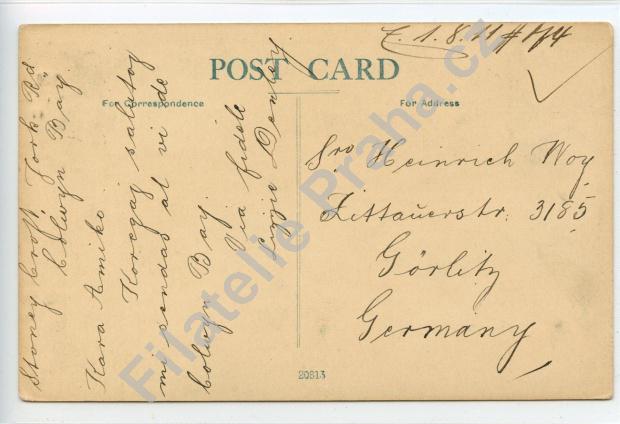 E. 1.8.11 #
POST CARD
For Correspondence
For Address
Stoney Croft, York Rd
Colwyn Bay.
Kara Amiko
Koregaj salutoj
mi sendas al vi de
Colwyn Bay.
Via fidele
Lizzie
Sro Heinrich Woy
Zittauerstr. 3185
Görlitz
Germany
20813
Filatelie Praha.cz